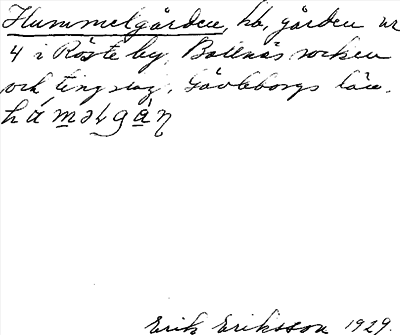 Hummelgården, hb, gården nr
4 i Röste by, Bollnäs socken
och tingslag, Gävleborgs län.
Erik Eriksson 1929.